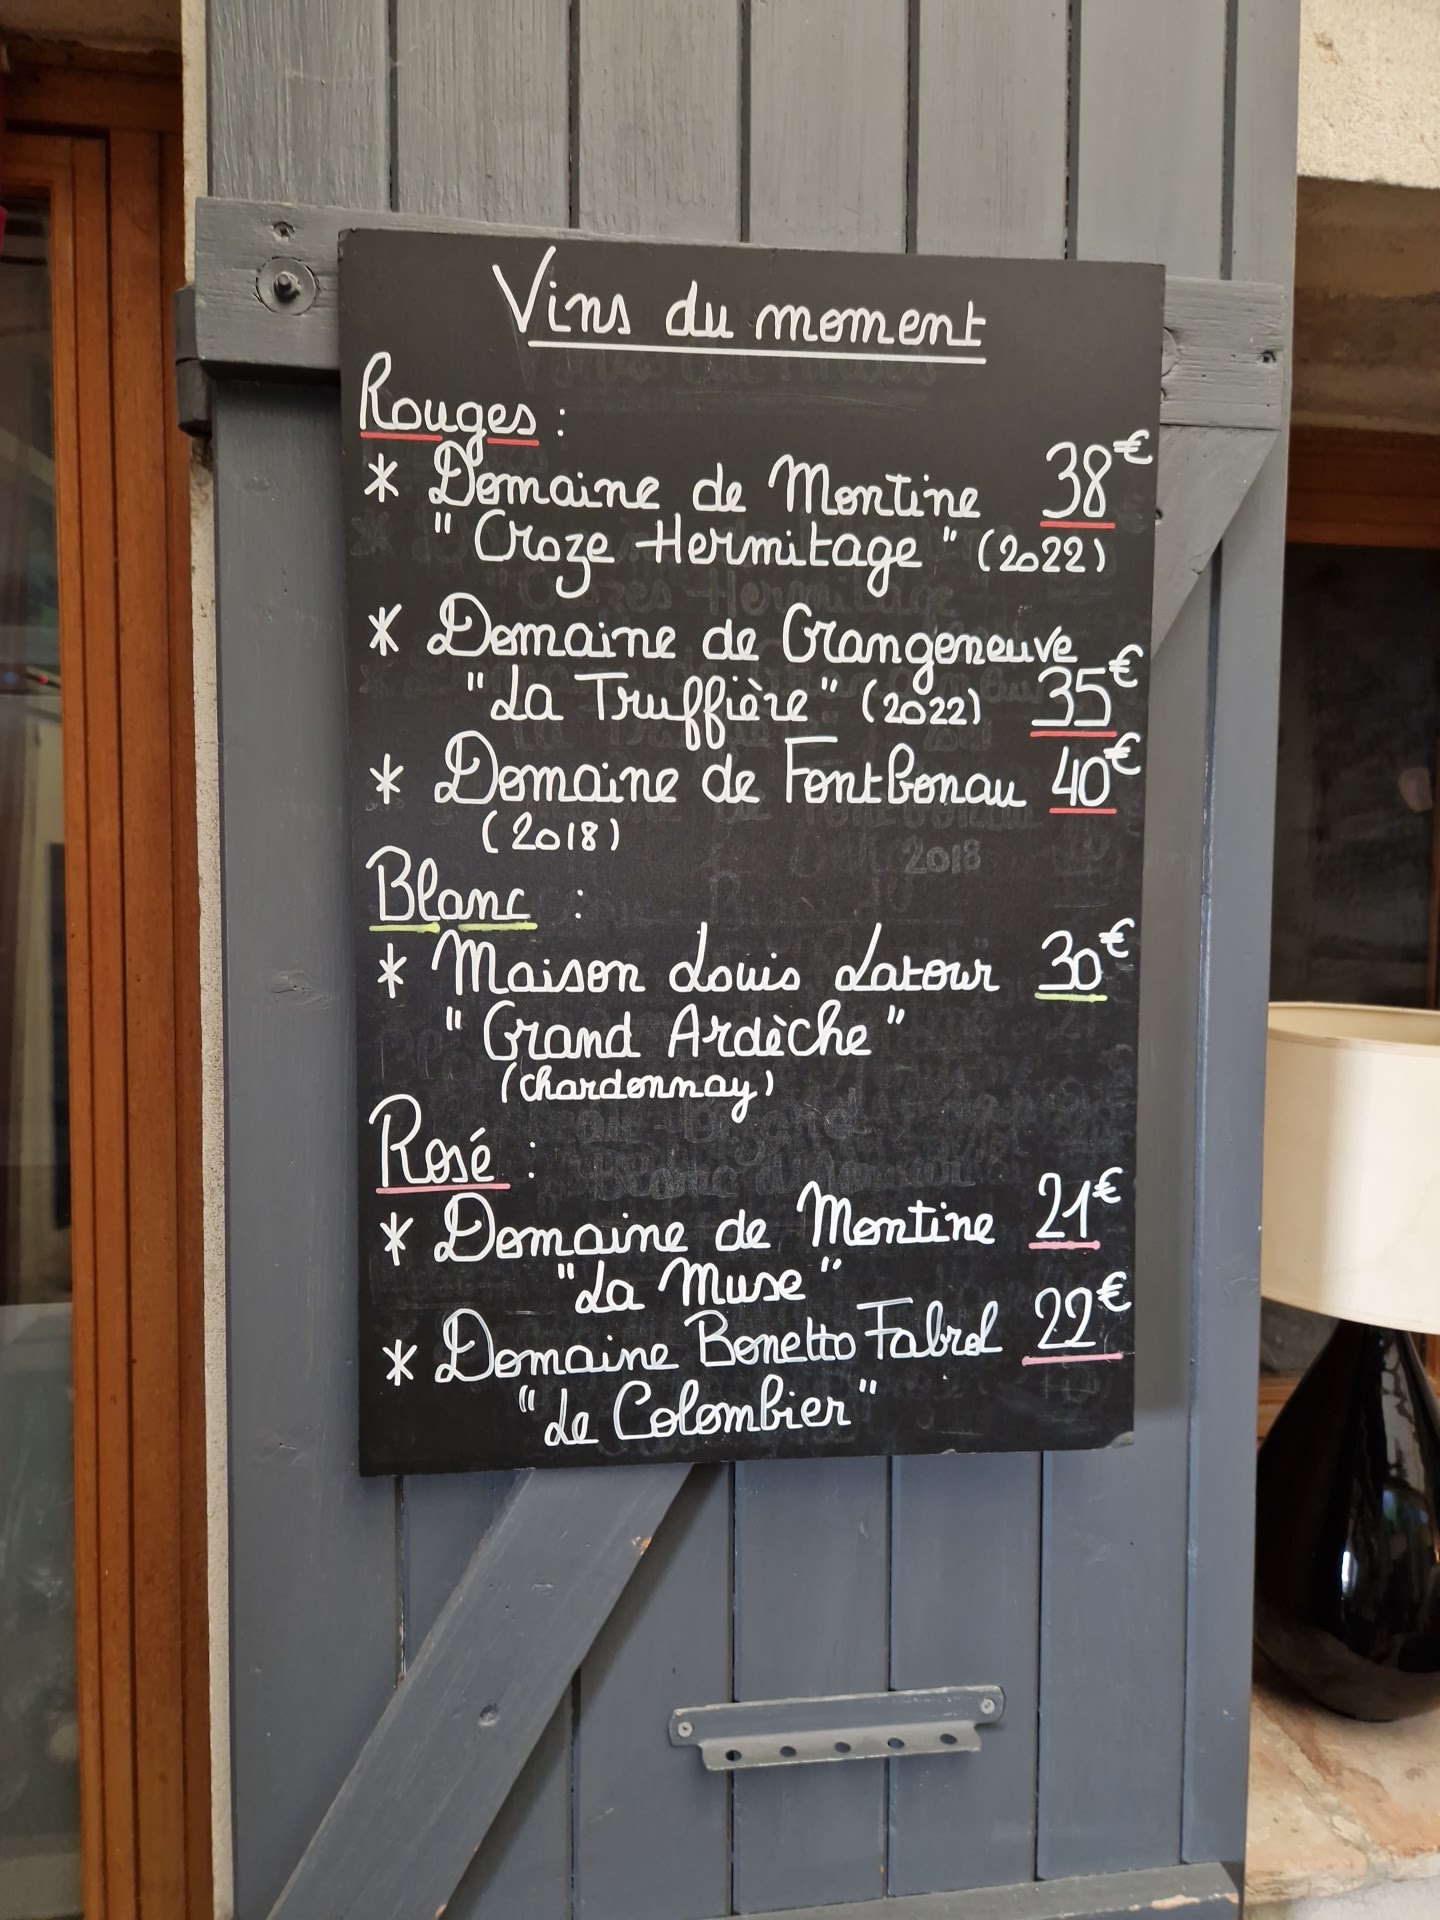 Vins du moment
Rouges :
* Domaine de Montine 38€
" Croze Hermitage " (2022)
* Domaine de Grangeneuve
"La Truffière" (2022) 35€
* Domaine de Fontbonau 40€
(2018)
2018
Blanc :
* Maison Louis Latour 30€
" Grand Ardèche "
(chardonnay)
Rosé :
* Domaine de Montine 21€
"La Muse"
* Domaine Bonetto Fabrol 22€
"Le Colombier"